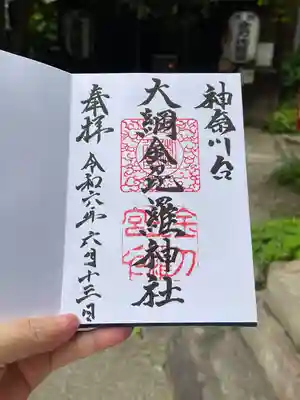 神奈川台
大綱金毘羅神社
奉拝 令和六年六月十三日